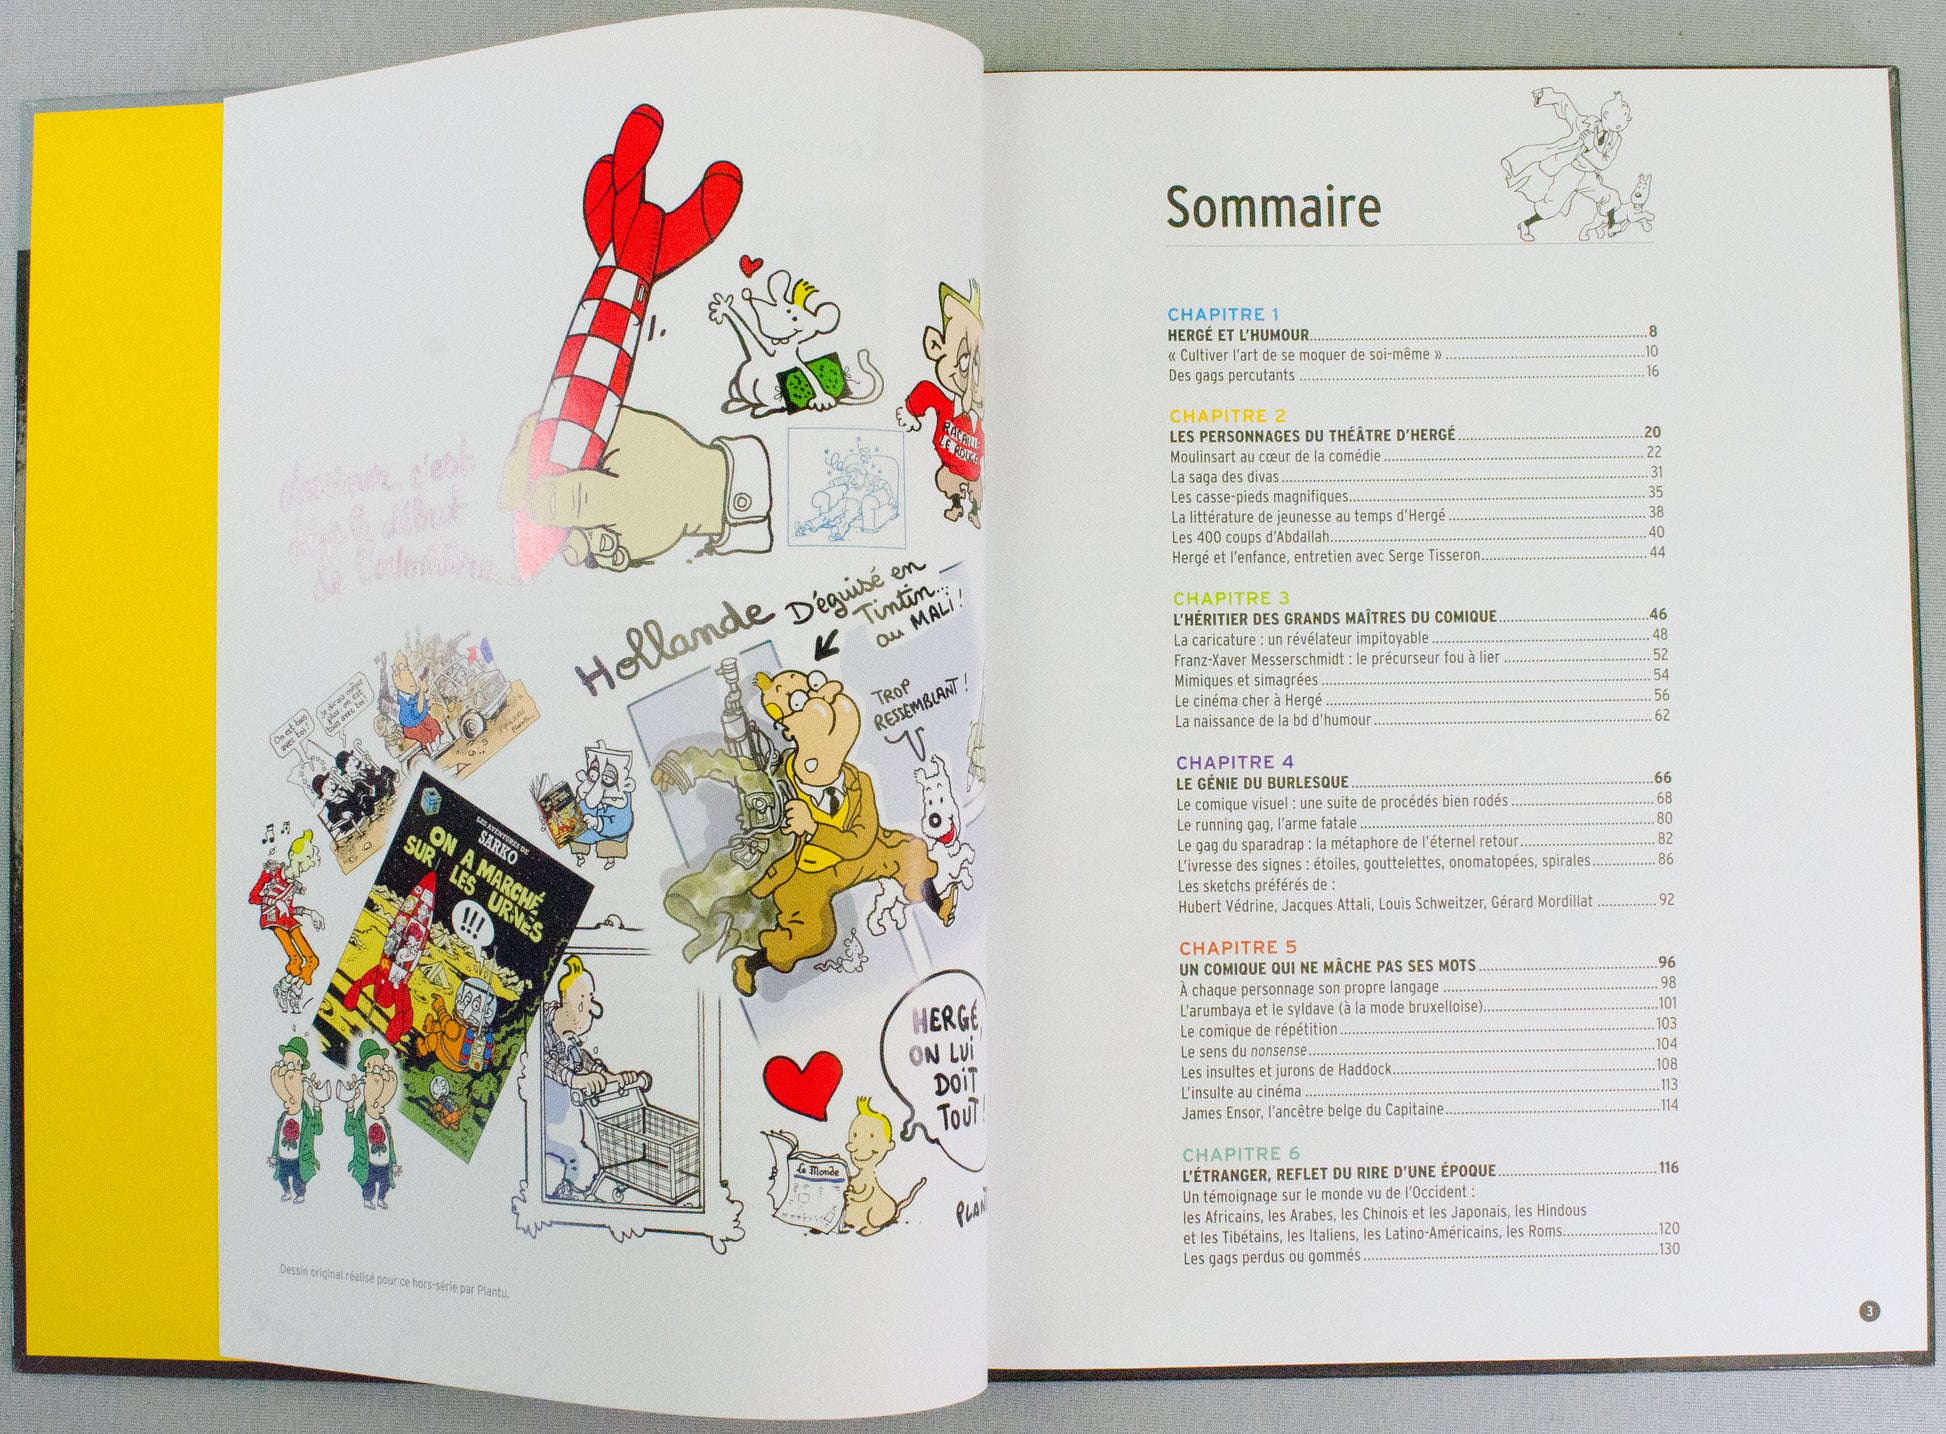 dessiner c'est
déjà le début
de l'aventure
RACAILLE
LE ROUGE
Hollande
Déguisé en
Tintin...
au MALI !
TROP
RESSEMBLANT !
On est bais
avec toi !
Je dirais même
plus : on est
bais avec toi !
Plantu
LES AVENTURES DE
SARKO
ON A MARCHÉ
SUR LES URNES
!!!
HERGÉ,
ON LUI
DOIT
TOUT !
Le Monde
PLANT
Dessin original réalisé pour ce hors-série par Plantu.
Sommaire
CHAPITRE 1
HERGÉ ET L'HUMOUR 8
« Cultiver l'art de se moquer de soi-même » 10
Des gags percutants 16
CHAPITRE 2
LES PERSONNAGES DU THÉÂTRE D'HERGÉ 20
Moulinsart au cœur de la comédie 22
La saga des divas 31
Les casse-pieds magnifiques 35
La littérature de jeunesse au temps d'Hergé 38
Les 400 coups d'Abdallah 40
Hergé et l'enfance, entretien avec Serge Tisseron 44
CHAPITRE 3
L'HÉRITIER DES GRANDS MAÎTRES DU COMIQUE 46
La caricature : un révélateur impitoyable 48
Franz-Xaver Messerschmidt : le précurseur fou à lier 52
Mimiques et simagrées 54
Le cinéma cher à Hergé 56
La naissance de la bd d'humour 62
CHAPITRE 4
LE GÉNIE DU BURLESQUE 66
Le comique visuel : une suite de procédés bien rodés 68
Le running gag, l'arme fatale 80
Le gag du sparadrap : la métaphore de l'éternel retour 82
L'ivresse des signes : étoiles, gouttelettes, onomatopées, spirales 86
Les sketchs préférés de :
Hubert Védrine, Jacques Attali, Louis Schweitzer, Gérard Mordillat 92
CHAPITRE 5
UN COMIQUE QUI NE MÂCHE PAS SES MOTS 96
À chaque personnage son propre langage 98
L'arumbaya et le syldave (à la mode bruxelloise) 101
Le comique de répétition 103
Le sens du nonsense 104
Les insultes et jurons de Haddock 108
L'insulte au cinéma 113
James Ensor, l'ancêtre belge du Capitaine 114
CHAPITRE 6
L'ÉTRANGER, REFLET DU RIRE D'UNE ÉPOQUE 116
Un témoignage sur le monde vu de l'Occident :
les Africains, les Arabes, les Chinois et les Japonais, les Hindous
et les Tibétains, les Italiens, les Latino-Américains, les Roms 120
Les gags perdus ou gommés 130
3